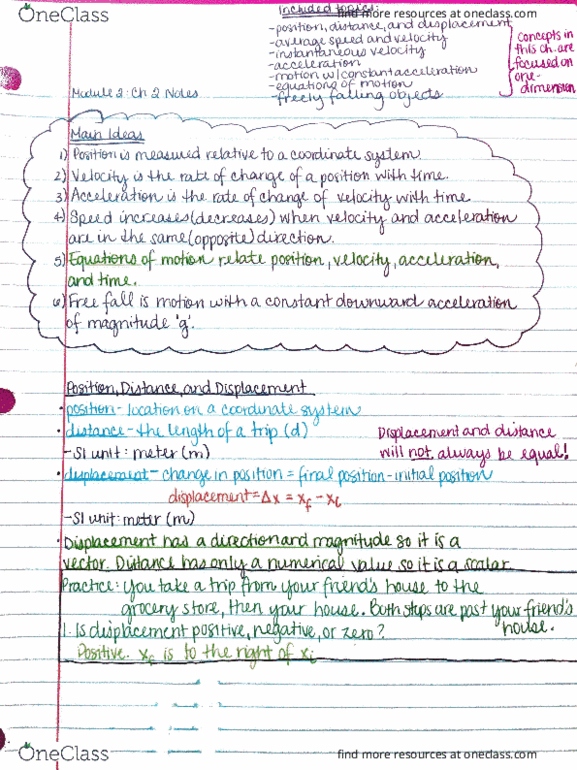 OneClass
Included topics:
find more resources at oneclass.com
-position, distance, and displacement
-average speed and velocity
-instantaneous velocity
-acceleration
-motion w/ constant acceleration
-equations of motion
-freely falling objects
concepts in
this ch. are
focused on
one-
dimension
Module 2: Ch 2 Notes
Main Ideas
1) Position is measured relative to a coordinate system.
2) Velocity is the rate of change of a position with time.
3) Acceleration is the rate of change of velocity with time
4) Speed increases (decreases) when velocity and acceleration
are in the same (opposite) direction.
5) Equations of motion relate position, velocity, acceleration,
and time.
6) Free fall is motion with a constant downward acceleration
of magnitude 'g'.
Position, Distance, and Displacement
• position - location on a coordinate system
• distance - the length of a trip (d)
-SI unit: meter (m)
Displacement and distance
will not always be equal!
• displacement - change in position = final position - initial position
displacement = Δx = xf - xi
-SI unit: meter (m)
• Displacement has a direction and magnitude so it is a
vector. Distance has only a numerical value so it is a scalar.
Practice: You take a trip from your friend's house to the
grocery store, then your house. Both stops are past your friend's
house.
1. Is displacement positive, negative, or zero?
Positive. xf is to the right of xi
OneClass
find more resources at oneclass.com